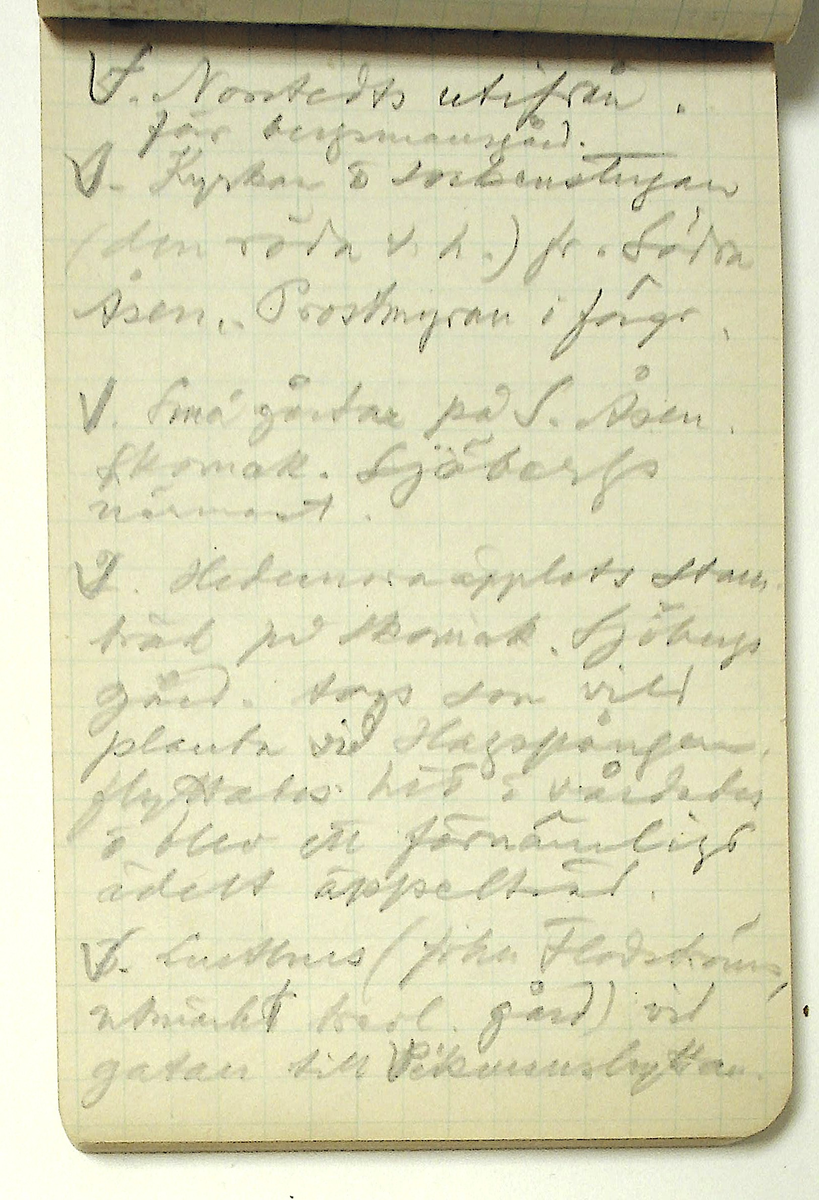 Norstedts utifrån.
för bergsmansgård.
Kyrkan o sockenstugan
(den röda t. h.) fr. Södra
Åsen. Prostmyran i förgr.
V. Små gårdar på S. Åsen.
Skomak. Sjöbergs
närmast.
Hedemoraäpplets stam-
träd på skomak. Sjöbergs
gård. togs som vild
planta vid Hagspången.
flyttades hit o vårdades
o blev ett förnämligt
ädelt äppelträd.
Lusthus (John Flodströms,
utmärkt trevl. gård) vid
gatan till